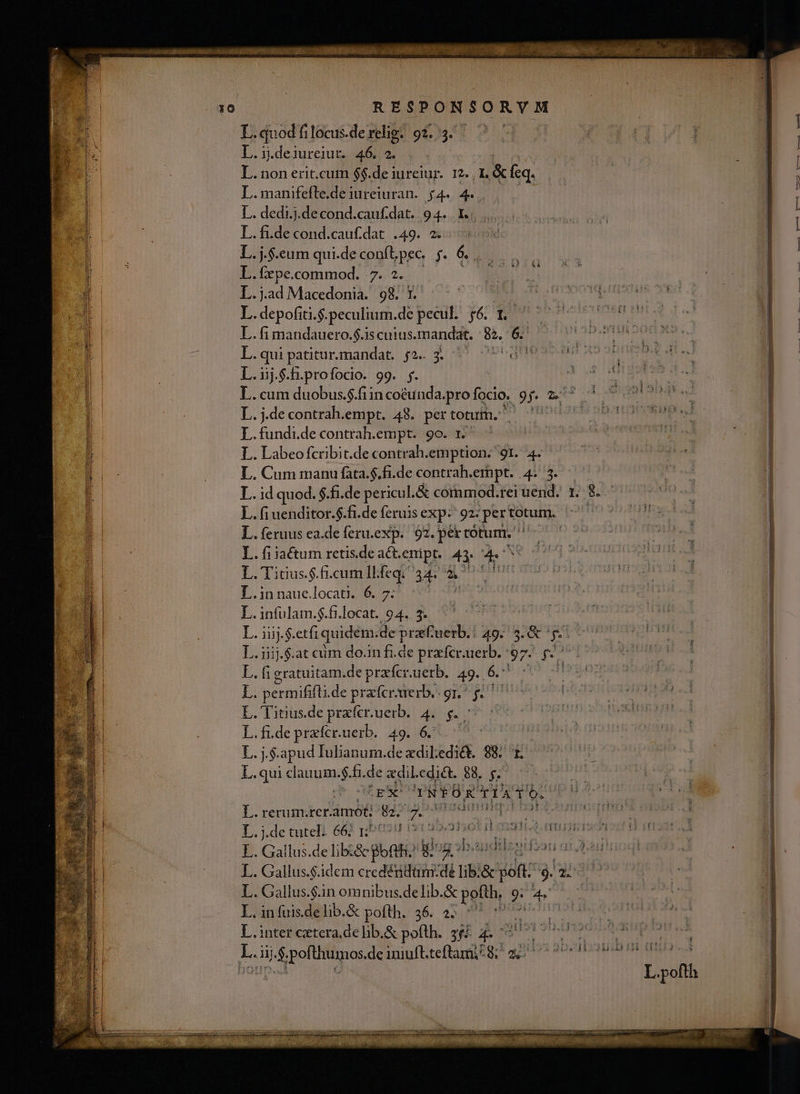 10 RESPONSORVM
L. quod ſi locus.de relig. 92. 3.
L. ij.de iureiur. 46. 2.
L. non erit.cum §§.de iureiur. 12. 1. & ſeq.
L. manifeſte.de iureiuran. 54. 4.
L. dedi.j.de cond.cauſ.dat. 94. 1.
L. ſi.de cond.cauſ.dat .49. 2.
L. j.§.eum qui.de conſt.pec. 5. 6.
L. ſæpe.commod. 7. 2.
L. j.ad Macedonia. 98. 1.
L. depoſiti.§.peculium.de pecul. 56. 1.
L. ſi mandauero.§.is cuius.mandat. 82. 6.
L. qui patitur.mandat. 52.. 3.
L. iij.§.ſi.pro ſocio. 99. 5.
L. cum duobus.§.ſi in coëunda.pro ſocio. 95. 2.
L. j.de contrah.empt. 48. per totum.
L. fundi.de contrah.empt. 90. 1.
L. Labeo ſcribit.de contrah.emption. 91. 4.
L. Cum manu ſata.§.ſi.de contrah.empt. 4. 3.
L. id quod. §.ſi.de pericul.& commod.rei uend. 1. 8.
L. ſi uenditor.§.ſi.de ſeruis exp. 92. per totum.
L. ſeruus ea.de ſeru.exp. 92. per totum.
L. ſi iactum retis.de act.empt. 43. 4.
L. Titius.§.ſi.cum ll.ſeq. 34. 2.
L. in naue.locati. 6. 7.
L. inſulam.§.ſi.locat. 94. 3.
L. iiij.§.etſi quidem.de præſ.uerb. 49. 3. & 5.
L. iiij.§.at cùm do.in fi.de præſcr.uerb. 97. 5.
L. ſi gratuitam.de præſcr.uerb. 49. 6.
L. permiſiſti.de præſcr.uerb. 91. 5.
L. Titius.de præſcr.uerb. 4. 5.
L. ſi.de præſcr.uerb. 49. 6.
L. j.§.apud Iulianum.de ædil.edict. 88. 1.
L. qui clauum.§.ſi.de ædil.edict. 88. 5.
EX INFORTIATO.
L. rerum.rer.amot. 82. 7.
L. j.de tutel. 66. 1.
L. Gallus.de lib.& poſth. 8. 7.
L. Gallus.§.idem credendum.de lib.& poſt. 9. 2.
L. Gallus.§.in omnibus.de lib.& poſth. 9. 4.
L. in ſuis.de lib.& poſth. 36. 2.
L. inter cætera.de lib.& poſth. 4.
L. iij.§.poſthumos.de iniuſt.teſtam. 8. 2.
L.poſth